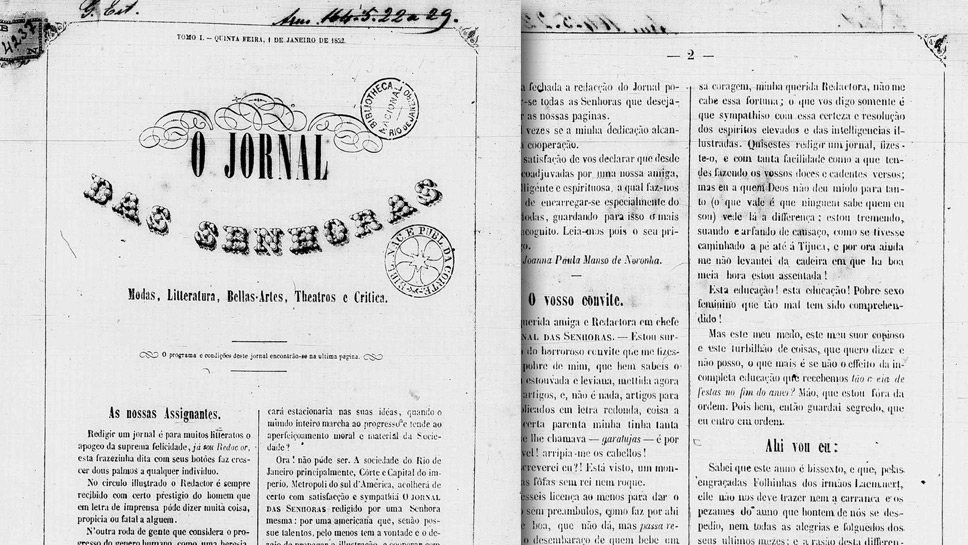 G. Est.
Arm. 144.5.22 a 29.
4237
TOMO I. — QUINTA FEIRA, 1 DE JANEIRO DE 1852.
BIBLIOTHECA NACIONAL RIO DE JANEIRO
O JORNAL
DAS SENHORAS
BIBL. NAC E PUBL DA CORTE
Modas, Litteratura, Bellas-Artes, Theatros e Critica.
O programa e condições deste jornal encontrão-se na ultima pagina.
As nossas Assignantes.
Redigir um jornal é para muitos litteratos o
apogeo da suprema felicidade, já sou Redactor,
esta frazezinha dita com seus botões faz cres-
cer dous palmos a qualquer individuo.
No circulo illustrado o Redactor é sempre
recibido com certo prestigio do homem que
em letra de imprensa póde dizer muita coisa,
propicia ou fatal a alguem.
N'outra roda de gente que considera o pro-
gresso do genero humano, como uma heresia
cará estacionaria nas suas idéas, quando o
mundo inteiro marcha ao progresso e tende ao
aperfeiçoamento moral e material da Socie-
dade?
Ora! não póde ser. A sociedade do Rio de
Janeiro principalmente, Côrte e Capital do im-
perio, Metropoli do sul d'América, acolherá de
certo com satisfação e sympathia O JORNAL
DAS SENHORAS redigido por uma Senhora
mesma: por uma americana que, senão pos-
sue talentos, pelo menos tem a vontade e o de-
— 2 —
a fechada a redacção do Jornal po-
-se todas as Senhoras que deseja-
r as nossas paginas.
vezes se a minha dedicação alcan-
cooperação.
satisfação de vos declarar que desde
coadjuvadas por uma nossa amiga,
lligente e espirituosa, a qual faz-nos
de encarregar-se especialmente do
todas, guardando para isso o mais
cognito. Leia-mos pois o seu pri-
go.
Joanna Paula Manso de Noronha.
O vosso convite.
uerida amiga e Redactora em chefe
NAL DAS SENHORAS. — Estou sur-
do horroroso convite que me fizes-
pobre de mim, que bem sabeis o
estouvada e leviana, mettida agora
artigos, e, não é nada, artigos para
olicados em letra redonda, coisa a
certa parenta minha tinha tanta
e lhe chamava — garatujas — é por
vel! arripia-me os cabellos!
screverei eu?! Está visto, um mon-
as fôfas sem rei nem roque.
esseis licença ao menos para dar o
sem preambulos, como faz por ahi
e boa, que não dá, mas passa re-
o desembaraço de quem bebe um
sa coragem, minha querida Redactora, não me
cabe essa fortuna; o que vos digo somente é
que sympathiso com essa certeza e resolução
dos espiritos elevados e das intelligencias il-
lustradas. Quisestes redigir um jornal, fizes-
te-o, e com tanta facilidade como a que ten-
des fazendo os vossos doces e cadentes versos;
mas eu a quem Deos não deu miolo para tan-
to (o que vale é que ninguem sabe quem eu
sou) vede lá a differença: estou tremendo,
suando e arfando de cansaço, como se tivesse
caminhado a pé até á Tijuca, e por ora ainda
me não levantei da cadeira em que ha boa
meia hora estou assentada!
Esta educação! esta educação! Pobre sexo
feminino que tão mal tem sido comprehen-
dido!
Mas este meu medo, este meu suor copioso
e este turbilhão de coisas, que quero dizer e
não posso, o que mais é se não o effeito da in-
completa educação que recebemos tão c eia de
festas no fim do anno? Máo, que estou fóra da
ordem. Pois bem, então guardai segredo, que
eu entro em ordem.
Ahi vou eu:
Sabei que este anno é bissexto, e que, pelas
engraçadas Folhinhas dos irmãos Laemmert,
elle não nos deve trazer nem a carranca e os
pezames do anno que hontem de nós se des-
pedio, nem todas as alegrias e folguedos dos
seus ultimos mezes; e a rasão desta differen-